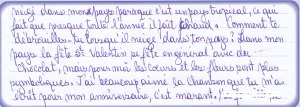 neigé dans mon pays parceque c'est un pays tropical, ce qui
fait que presque toute l'année il fait chaud. Comment te
débrouilles-tu lorsqu'il neige dans ton pays? Dans mon
pays la fête de Valentin se fête en général avec du
Chocolat, mais pour moi, les cœurs et les fleurs sont plus
symboliques. J'ai beaucoup aimé la chanson que tu m'as
écrit pour mon anniversaire, c'est marrant.